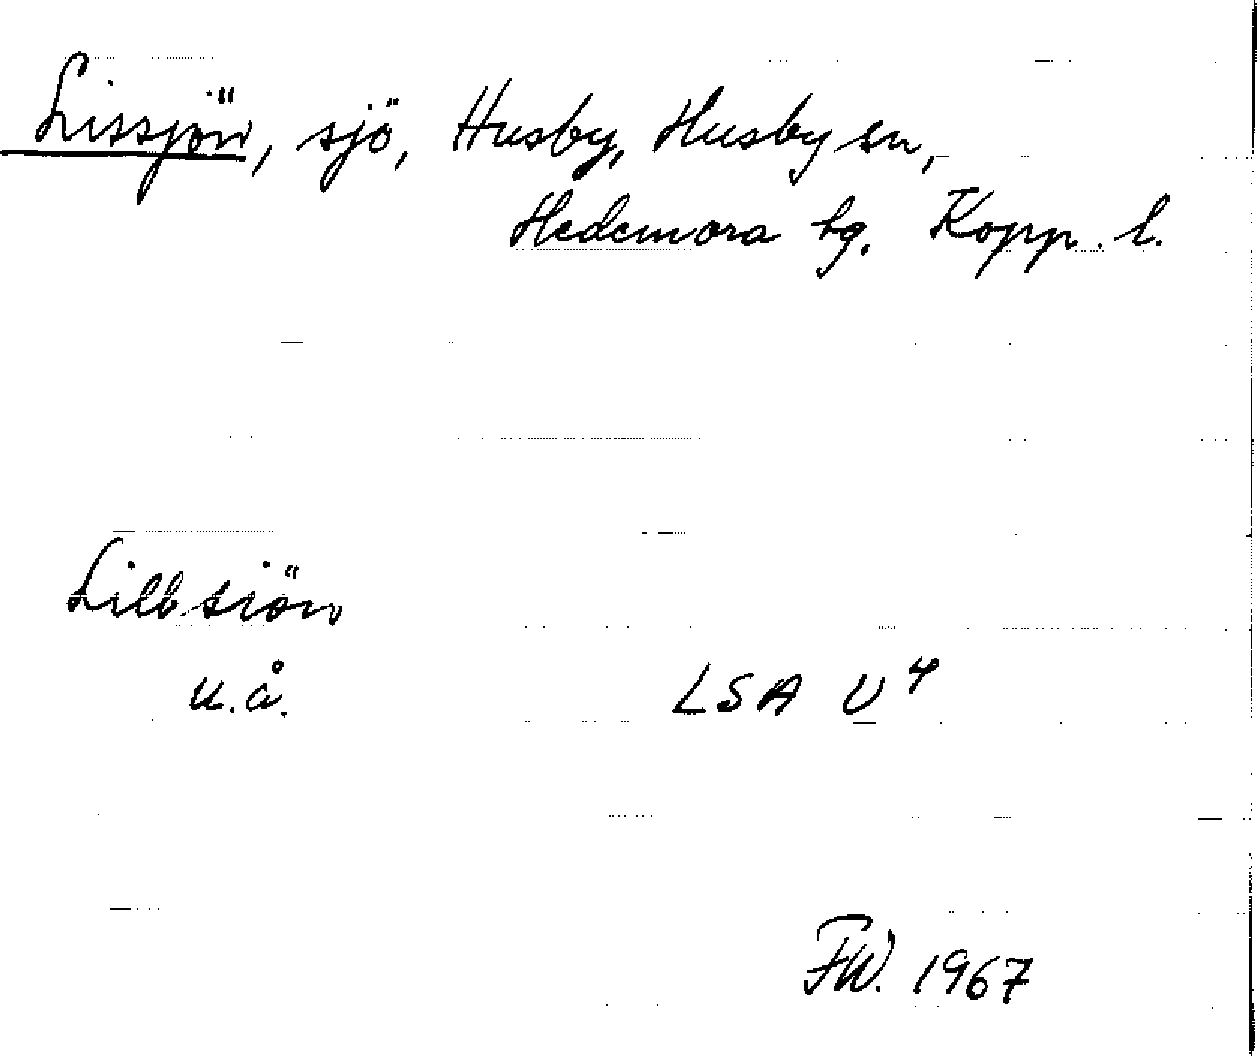 Lissjön, sjö, Husby, Husby sn,
Hedemora bg. Kopp. l.
Lillsiön
u.å. LSA U 4
FW. 1967